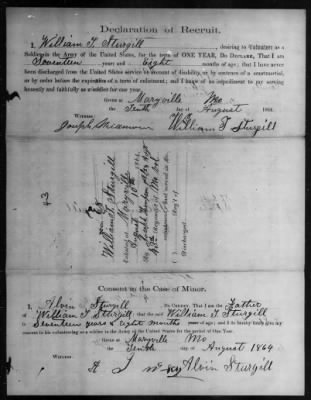 Declaration of Recruit.
I, William T. Sturgill desiring to Volunteer as a
Soldier in the Army of the United States, for the term of ONE YEAR, Do Declare, That I am
Seventeen years and Eight months of age; that I have never
been discharged from the United States service on account of disability, or by sentence of a court-martial,
or by order before the expiration of a term of enlistment; and I know of no impediment to my serving
honestly and faithfully as a soldier for one year.
Given at Maryville Mo
The Tenth day of August 1864.
Witness:
William T Sturgill
William T Sturgill
Maryville
August 10th
43d Regiment Mo Vol
Discharged
Consent in the Case of Minor.
I, Alvin Sturgill Do Certify, That I am the Father
of William T Sturgill that the said William T Sturgill
is Seventeen years & Eight months years of age; and I do hereby freely give my
consent to his volunteering as a soldier in the Army of the United States for the period of One Year.
Given at Maryville Mo
the Tenth day of August 1864
Witness:
Alvin Sturgill